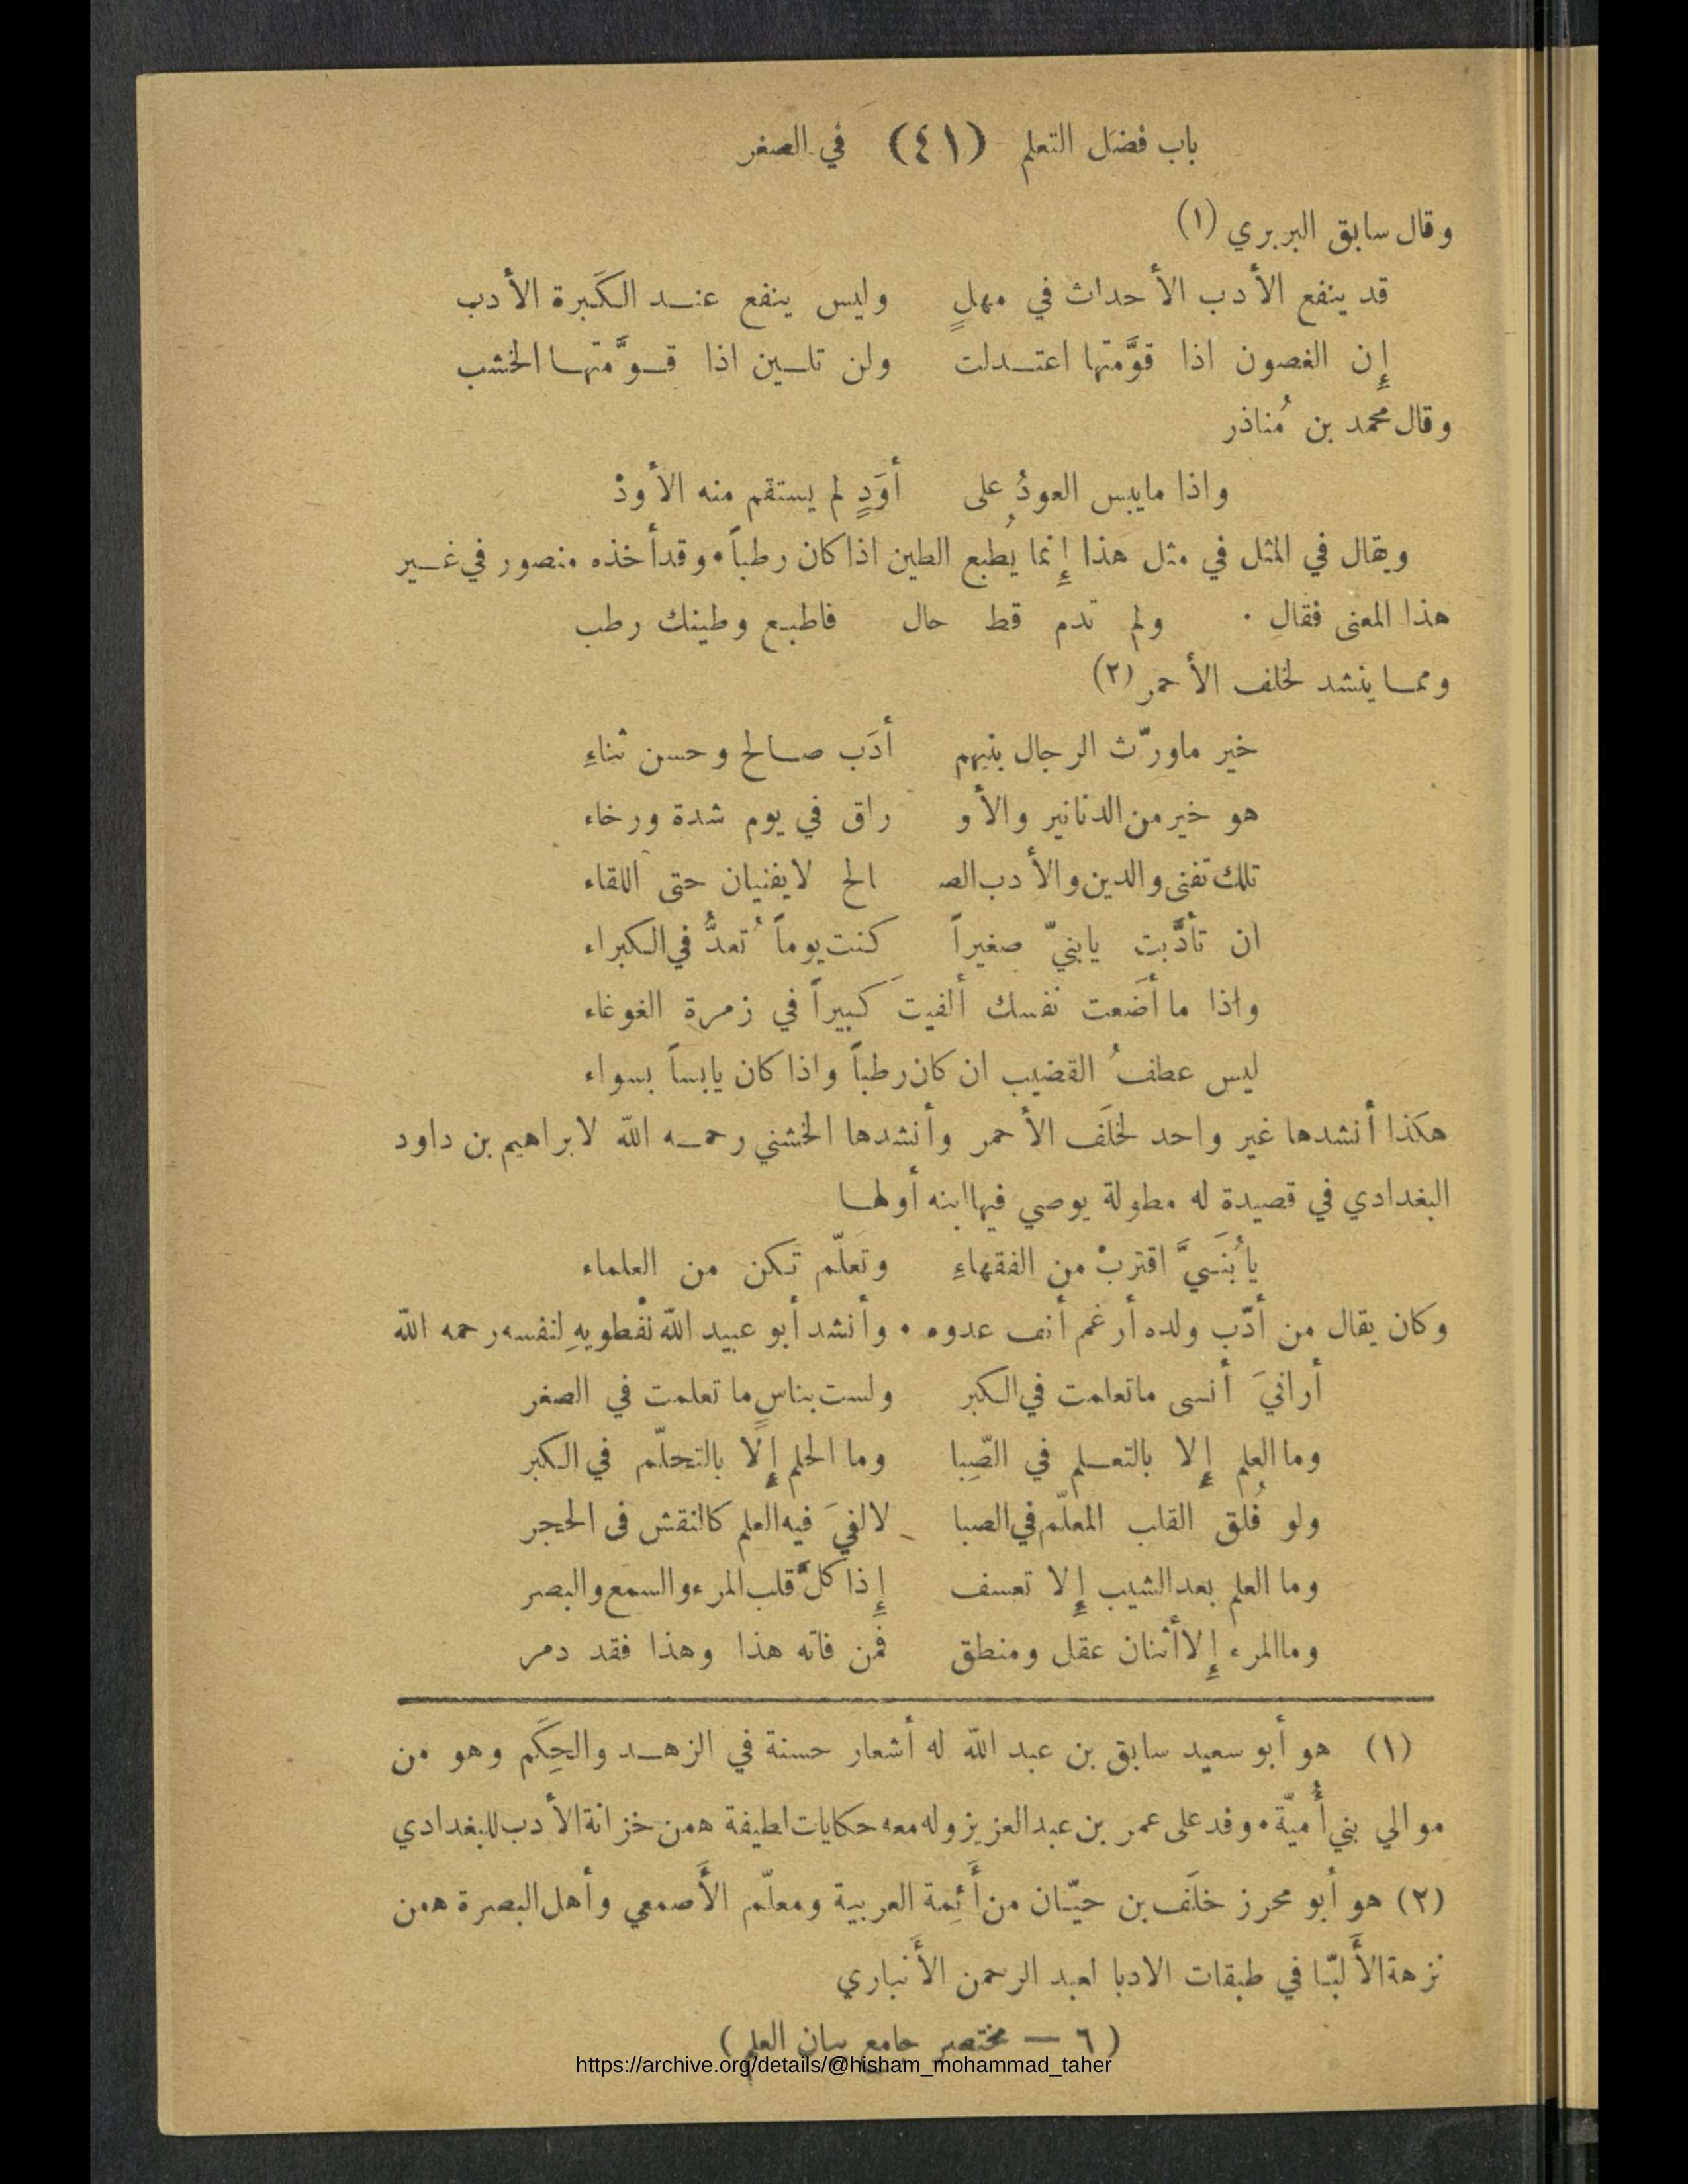 باب فضل التعلم (٤١) في الصغر
وقال سابق البربري (١)
قد ينفع الأدب الأحداث في مهلٍ وليس ينفع عند الكَبرة الأدب
إِن الغصون اذا قوَّمتها اعتدلت ولن تلين اذا قوَّمتها الخشب
وقال محمد بن مُناذر
واذا مايبس العودُ على أوَدٍ لم يستقم منه الأودْ
ويقال في المثل في مثل هذا إِنما يُطبع الطين اذا كان رطباً . وقد أخذه منصور في غير
هذا المعنى فقال . ولم تدم قط حال فاطبع وطينك رطب
ومما ينشد لخلف الأحمر (٢)
خير ماورّث الرجال بنيهم أدَب صالح وحسن ثناءِ
هو خير من الدنانير والأو راق في يوم شدة ورخاء
تلك تفنى والدين والأدب الصـ الح لايفنيان حتى اللقاء
ان تأدَّبت يابنيّ صغيراً كنت يوماً تُعدُّ في الكبراء
واذا ما أضَعت نفسك ألفيتَ كبيراً في زمرة الغوغاء
ليس عطفُ القضيب ان كان رطباً واذا كان يابساً بسواء
هكذا أنشدها غير واحد لخلَف الأحمر وأنشدها الخشني رحمه الله لابراهيم بن داود
البغدادي في قصيدة له مطولة يوصي فيها ابنه أولها
يابُنَيَّ اقتربْ من الفقهاءِ وتعلّم تكن من العلماء
وكان يقال من أدّب ولده أرغم أنف عدوه . وأنشد أبو عبيد الله نفْطويهِ لنفسه رحمه الله
أرانيَ أنسى ماتعلمت في الكبر ولست بناسٍ ما تعلمت في الصغر
وما العلم إِلا بالتعلم في الصِّبا وما الحلم إِلَّا بالتحلّم في الكبر
ولو فُلق القلب المعلّم في الصبا لالفيَ فيه العلم كالنقش فى الحجر
وما العلم بعد الشيب إِلا تعسف إِذا كلَّ قلب المرء والسمع والبصر
وما المرء إِلا أثنان عقل ومنطق فمن فاته هذا وهذا فقد دمر
(١) هو أبو سعيد سابق بن عبد الله له أشعار حسنة في الزهد والحِكَم وهو من
موالي بني أُميّة . وفد على عمر بن عبد العزيز وله معه حكايات لطيفة همن خزانة الأدب للبغدادي
(٢) هو أبو محرز خلَف بن حيّان من أَئِمة العربية ومعلّم الأَصمعي وأهل البصرة همن
نزهة الأَلبّا في طبقات الادبا لعبد الرحمن الأَنباري
(٦ — مختصر جامع بيان العلم)
https://archive.org/details/@hisham_mohammad_taher